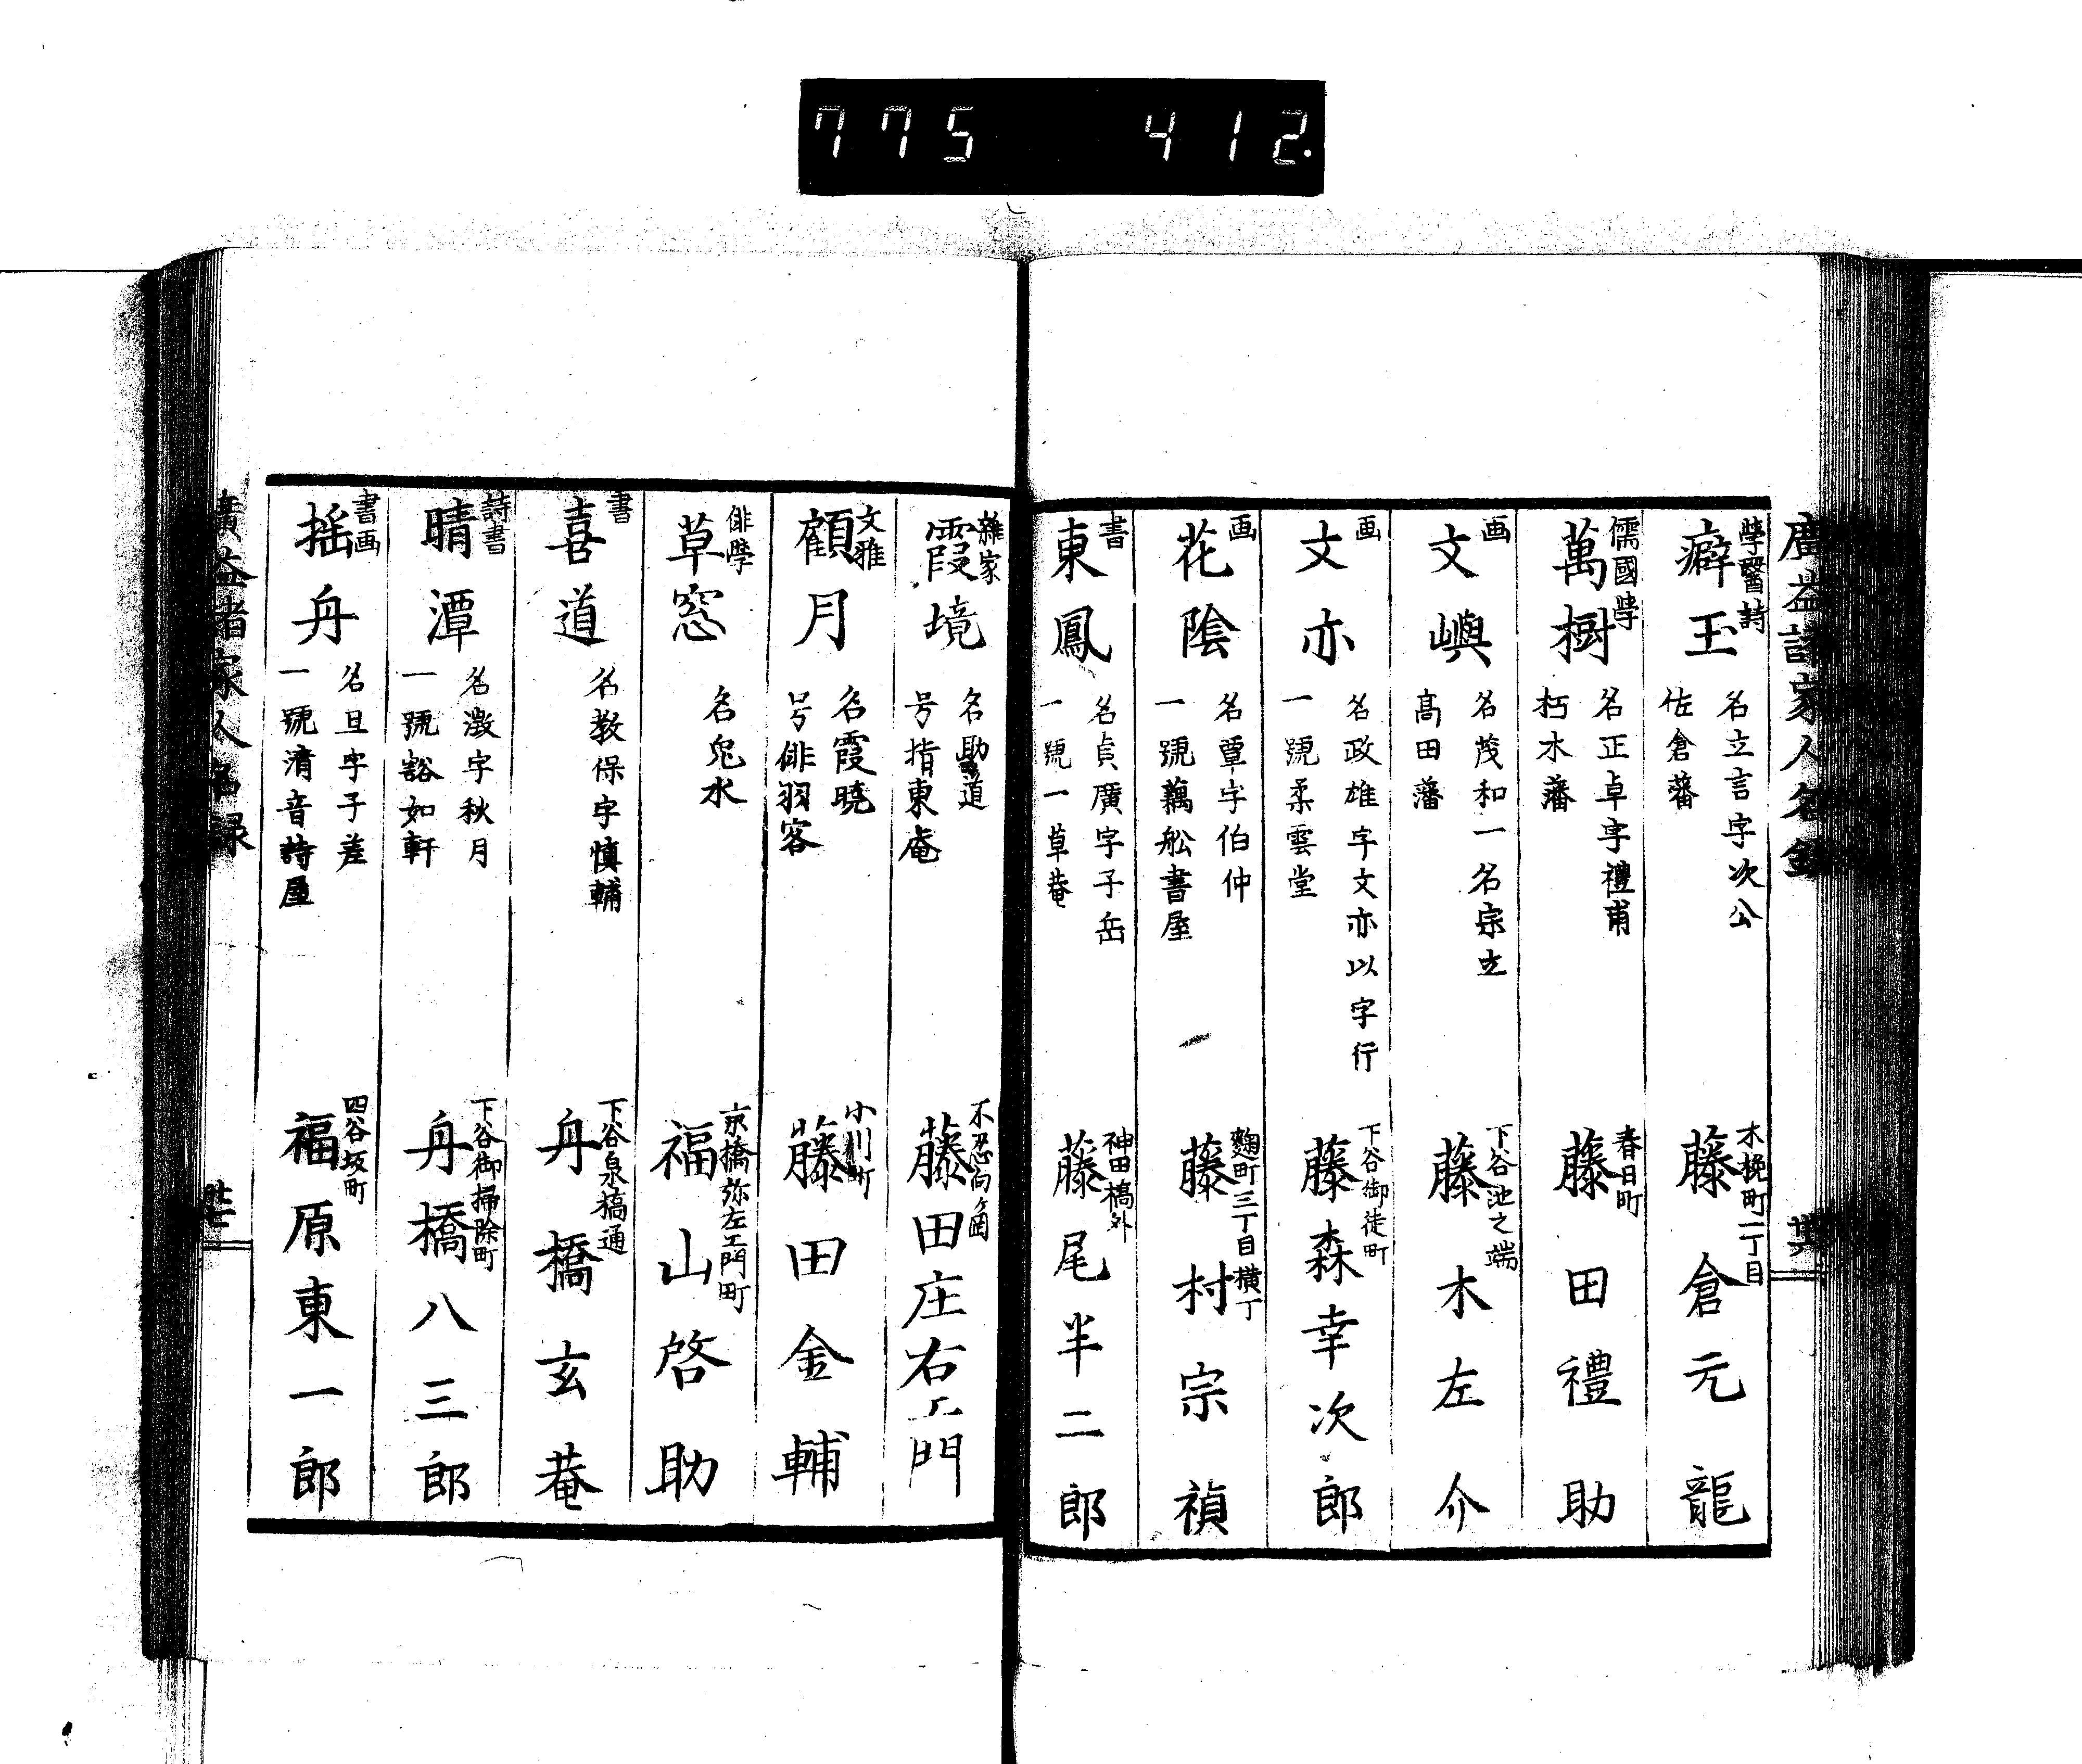 775 412.
廣益諸家人名録
學醫詩
癖玉
名立言字次公
佐倉藩
木挽町二丁目
藤倉元龍
儒國學
萬樹
名正卓字禮甫
朽木藩
春日町
藤田禮助
画
文嶼
名茂和一名宗立
高田藩
下谷池之端
藤木左介
画
文亦
名政雄字文亦以字行
一號柔雲堂
下谷御徒町
藤森幸次郎
画
花陰
名覃字伯仲
一號藕舩書屋
麹町三丁目横丁
藤村宗禎
書
東鳳
名貞廣字子岳
一號一草菴
神田橋外
藤尾半二郎
雜家
霞境
名助道
号指東庵
不忍向ヶ岡
藤田庄右エ門
文雅
顧月
名霞曉
号俳羽客
小川町
藤田金輔
俳學
草窓
名兎水
京橋弥左エ門町
福山啓助
書
喜道
名教保字慎輔
下谷泉橋通
舟橋玄菴
詩書
晴潭
名澂字秋月
一號豁如軒
下谷御掃除町
舟橋八三郎
書画
揺舟
名旦字子差
一號清音詩屋
四谷坂町
福原東一郎
廣益諸家人名録